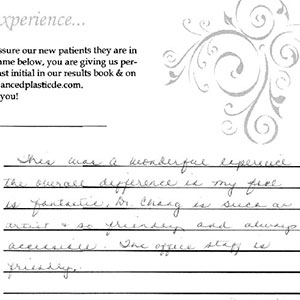 xperience...
ssure our new patients they are in
ame below, you are giving us per-
ast initial in our results book & on
ancedplasticde.com.
you!
This was a wonderful experience
the overall difference is my face
is fantastic, Dr. Chang is such an
artist & so friendly and always
accessible. The office staff is
friendly.